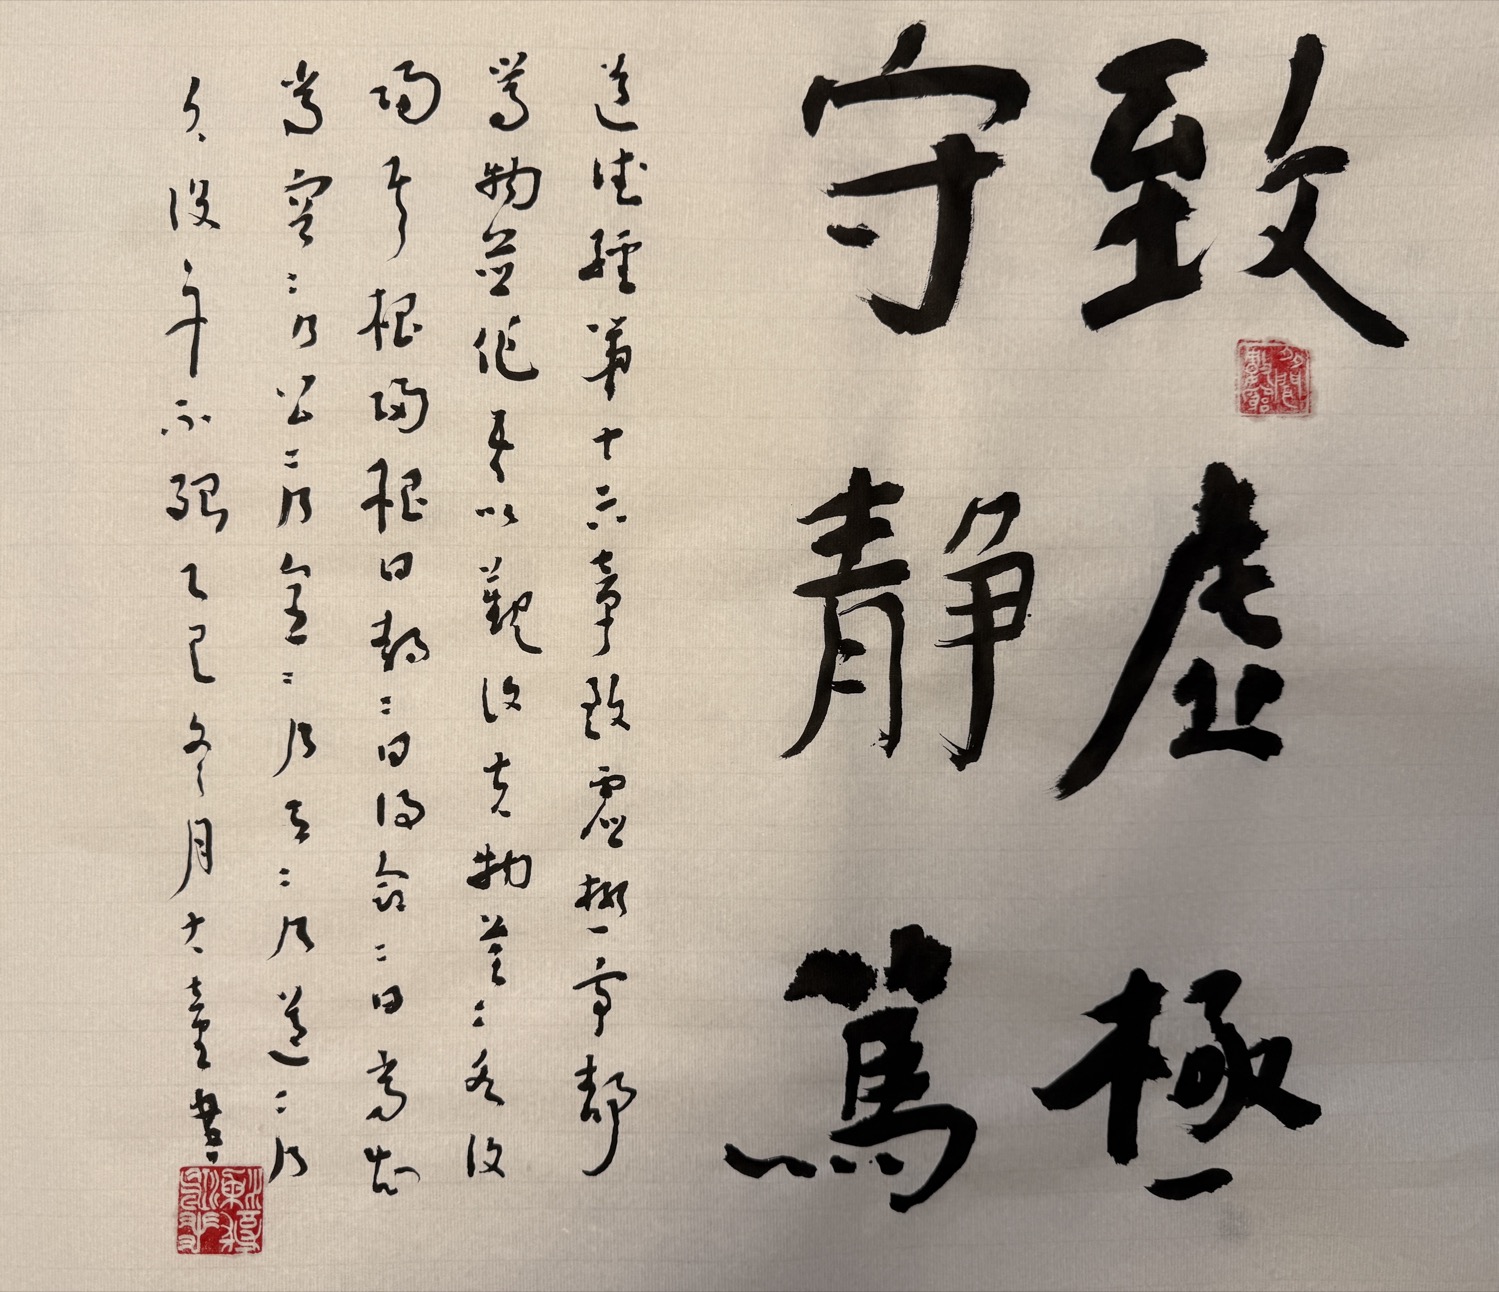 致虛極
守靜篤
道德經第十六章致虛極守靜
萬物並作吾以觀復夫物芸〻各復
歸其根歸根曰靜〻曰復命〻曰常知
常容〻乃公〻乃全〻乃天〻乃道〻乃
久沒身不殆乙巳冬月大童書